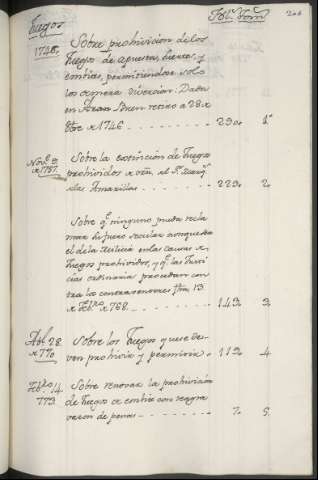 Juegos
Fol.s Tom.s
206
1746. Sobre prohivicion de los
Juegos de apuestas, suertes, y
embites, permitiendose solo
los de mera diversion. Dada
en Buen retiro a 28 de
Obre de 1746 - - - - - - - 290. 1º
Nov.e 9 de 1757. Sobre la extincion de Juegos
prohividos de orn. del S. Marq.s
de las Amarillas - - - - - 229. 2.
Sobre q.e ninguno pueda recla
mar su fuero secular aunque sea
el de la Milicia en las causas de
Juegos prohividos, y q.e las Justi
cias ordinarias procedan con
tra los contraventores 13
de Feb.ro de 768. - - - - - 143. 3.
Abl. 28 de 770. Sobre los Juegos que se de-
ven prohivir y permitir. 119. 4.
Feb.ro 14 773. Sobre renovar la prohivicion
de Juegos de embite con agra
vacion de penas - - - - - 7. 5.